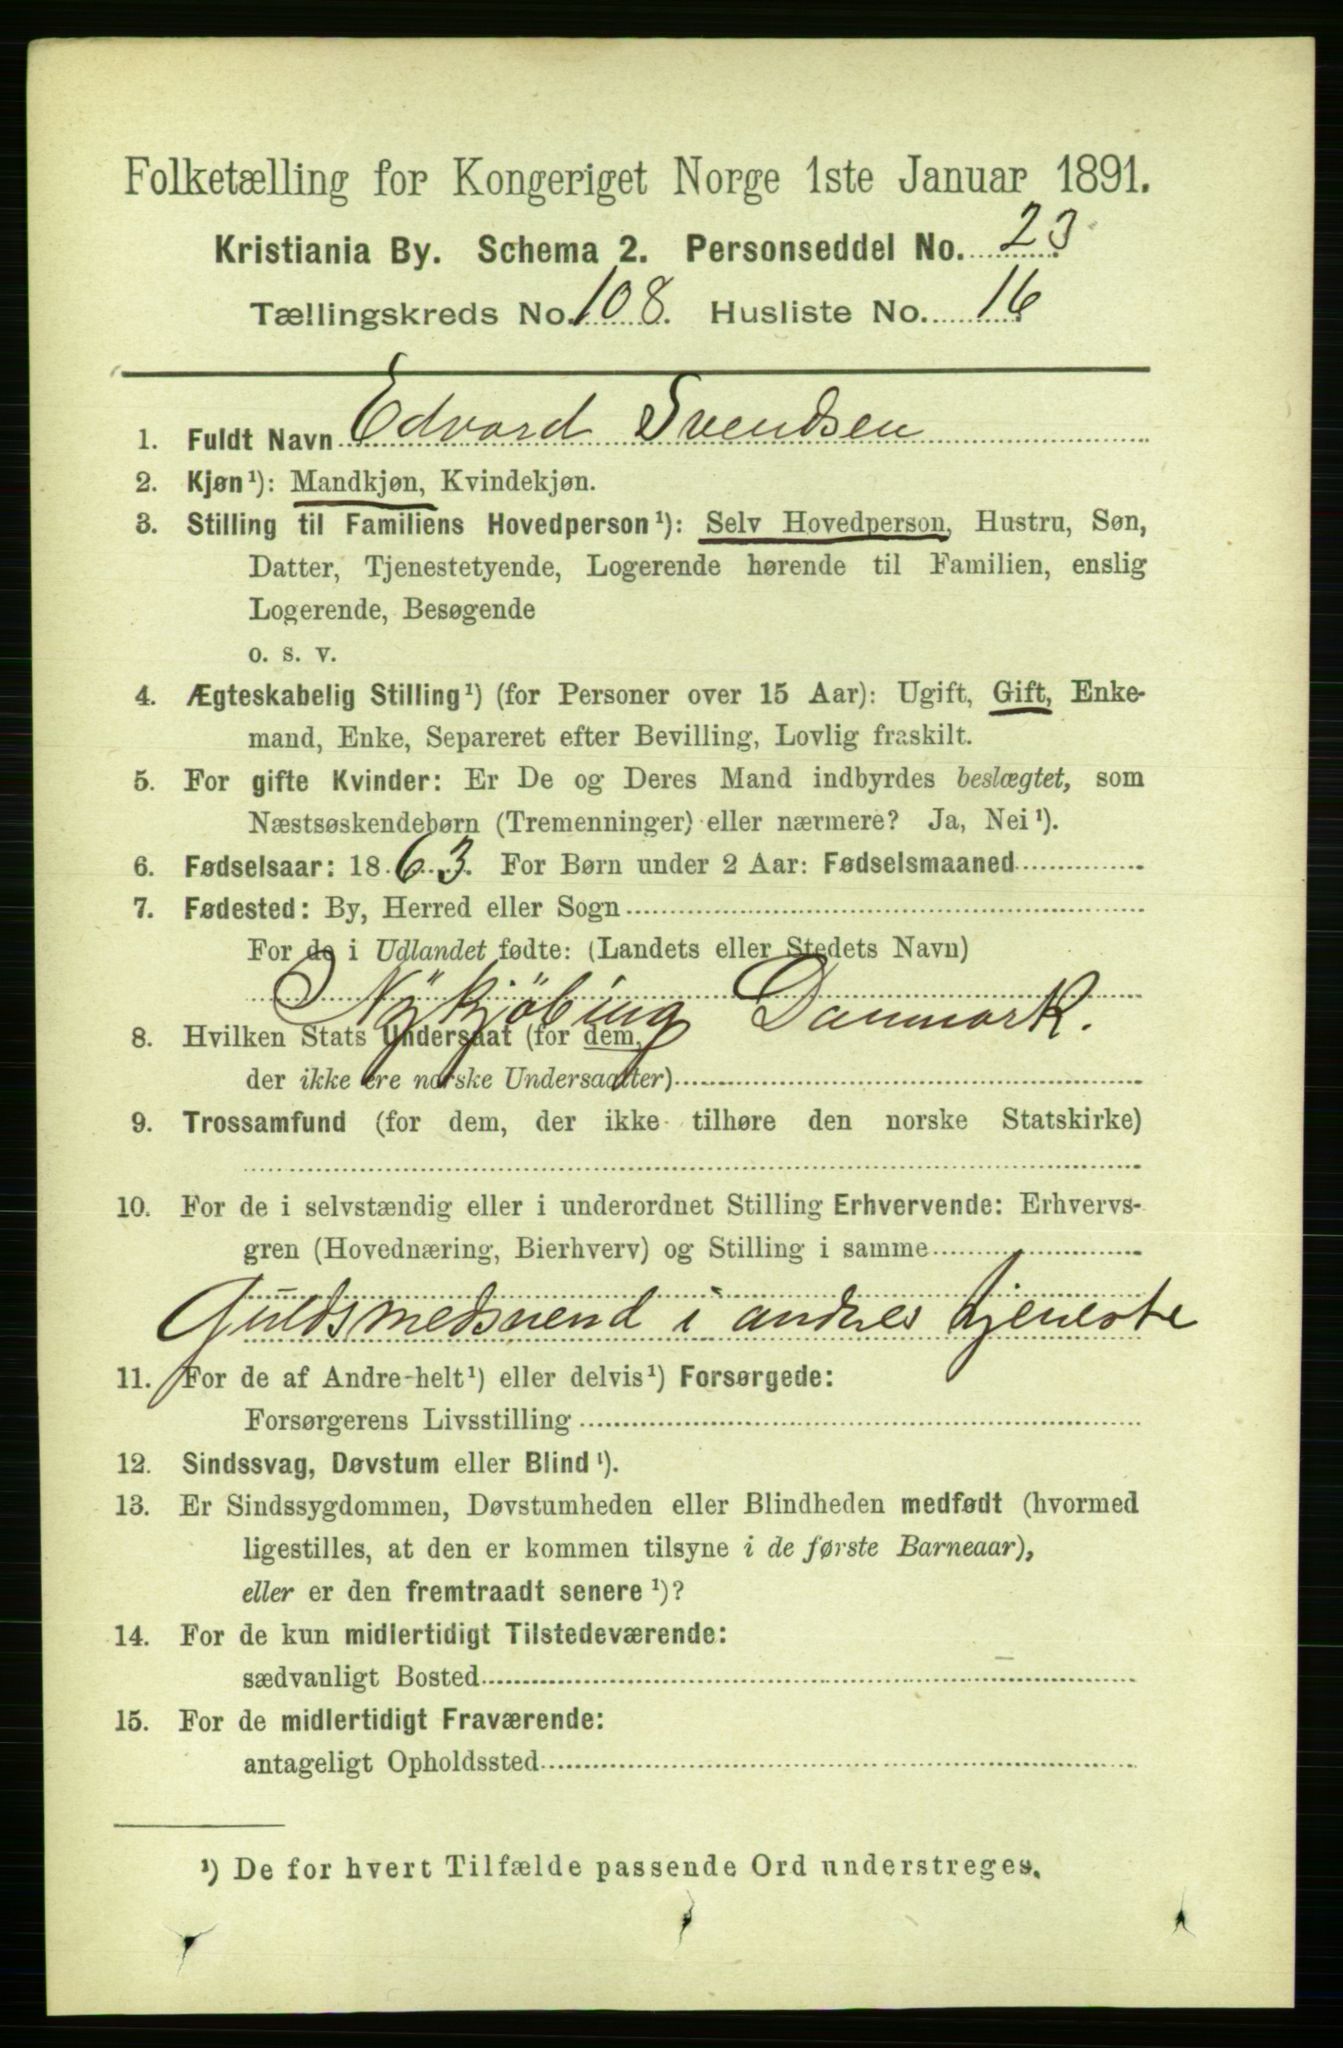 Folketælling for Kongeriget Norge 1ste Januar 1891.
Kristiania By. Schema 2. Personseddel No. 23
Tællingskreds No. 108. Husliste No. 16
1. Fuldt Navn Edvard Svendsen
2. Kjøn¹): Mandkjøn, Kvindekjøn.
3. Stilling til Familiens Hovedperson¹): Selv Hovedperson, Hustru, Søn,
Datter, Tjenestetyende, Logerende hørende til Familien, enslig
Logerende, Besøgende
o. s. v.
4. Ægteskabelig Stilling¹) (for Personer over 15 Aar): Ugift, Gift, Enke-
mand, Enke, Separeret efter Bevilling, Lovlig fraskilt.
5. For gifte Kvinder: Er De og Deres Mand indbyrdes beslægtet, som
Næstsøskendebørn (Tremenninger) eller nærmere? Ja, Nei¹).
6. Fødselsaar: 1863. For Børn under 2 Aar: Fødselsmaaned
7. Fødested: By, Herred eller Sogn
For de i Udlandet fødte: (Landets eller Stedets Navn)
Nykjöbing Danmark.
8. Hvilken Stats Undersaat (for dem,
der ikke ere norske Undersaatter)
9. Trossamfund (for dem, der ikke tilhøre den norske Statskirke)
10. For de i selvstændig eller i underordnet Stilling Erhvervende: Erhvervs-
gren (Hovednæring, Bierhverv) og Stilling i samme
Guldsmedsvend i andres tjeneste
11. For de af Andre helt¹) eller delvis¹) Forsørgede:
Forsørgerens Livsstilling
12. Sindssvag, Døvstum eller Blind¹).
13. Er Sindssygdommen, Døvstumheden eller Blindheden medfødt (hvormed
ligestilles, at den er kommen tilsyne i de første Barneaar),
eller er den fremtraadt senere¹)?
14. For de kun midlertidigt Tilstedeværende:
sædvanligt Bosted
15. For de midlertidigt Fraværende:
antageligt Opholdssted
¹) De for hvert Tilfælde passende Ord understreges.